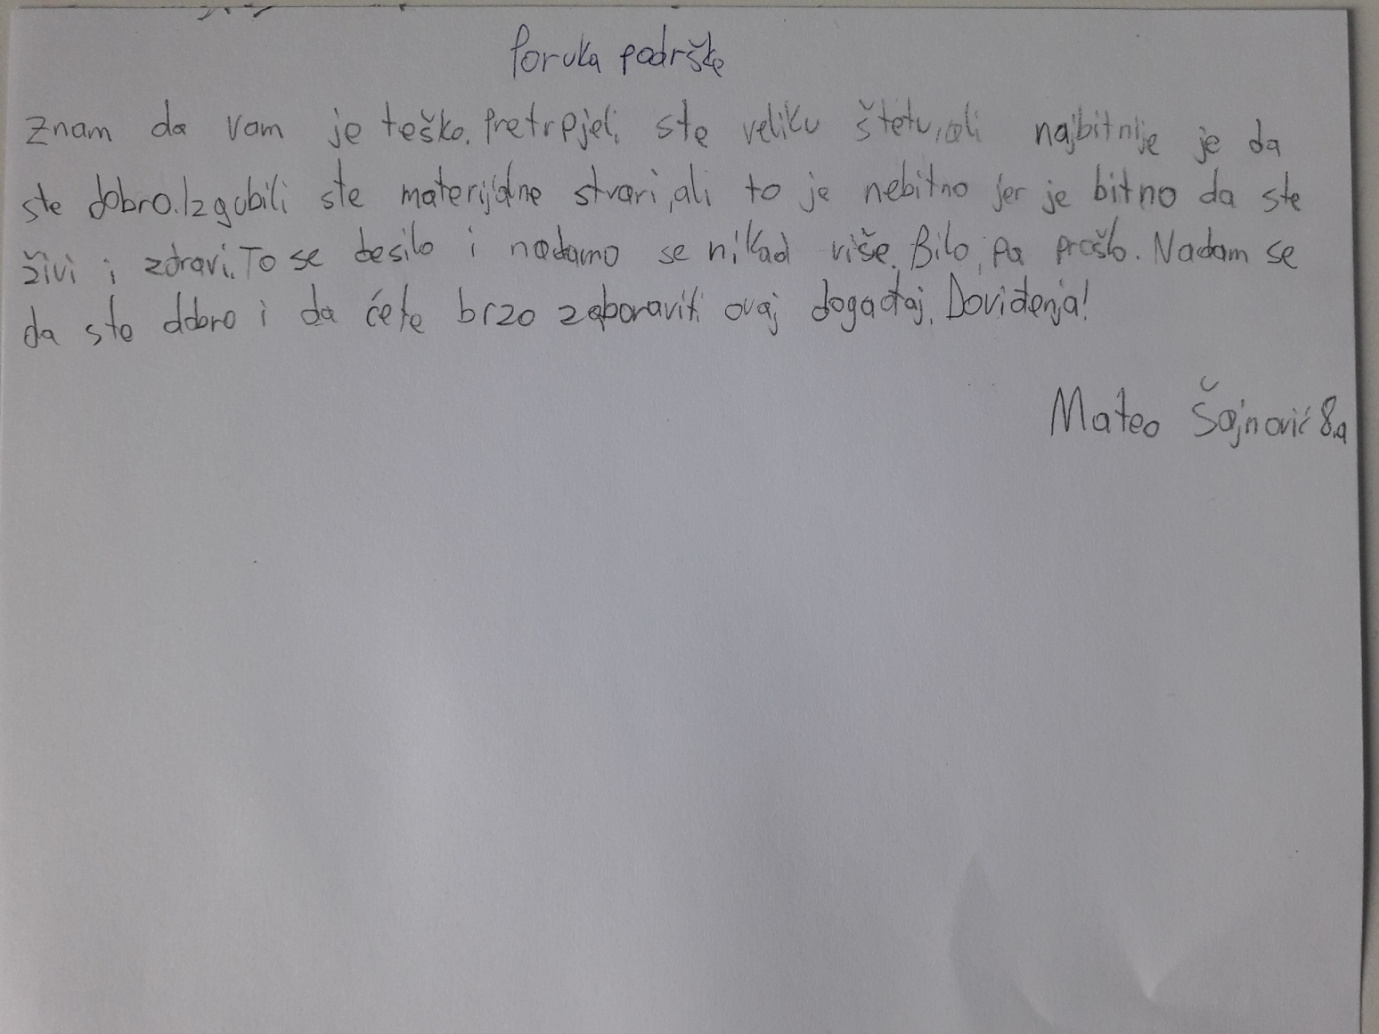 Poruka podrške
Znam da vam je teško. Pretrpjeli ste veliku štetu, ali najbitnije je da
ste dobro. Izgubili ste materijalne stvari, ali to je nebitno jer je bitno da ste
živi i zdravi. To se desilo i nadamo se nikad više. Bilo, pa prošlo. Nadam se
da ste dobro i da ćete brzo zaboraviti ovaj događaj. Doviđenja!
Mateo Šajnović 8.a